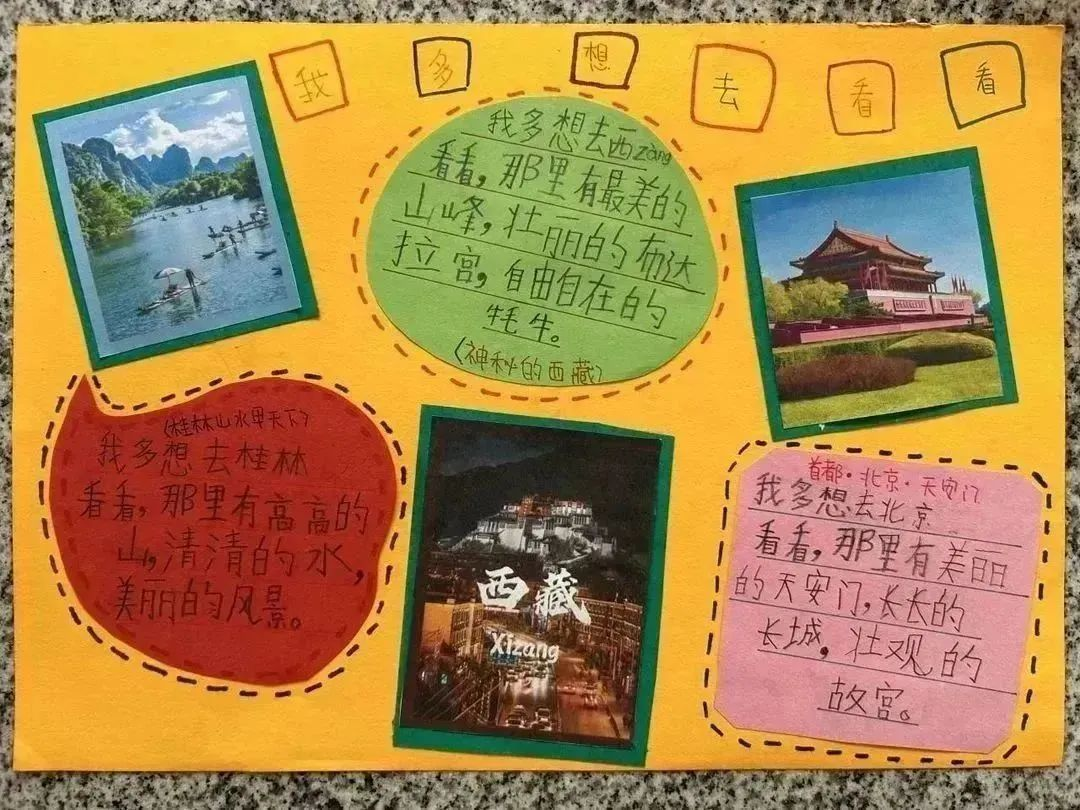 我多想去看看
我多想去西zàng
看看，那里有最美的
山峰，壮丽的布达
拉宫，自由自在的
牦牛。
（神秘的西藏）
（桂林山水甲天下）
我多想去桂林
看看，那里有高高的
山，清清的水，
美丽的风景。
西藏
Xizang
首都·北京·天安门
我多想去北京
看看，那里有美丽
的天安门，长长的
长城，壮观的
故宫。